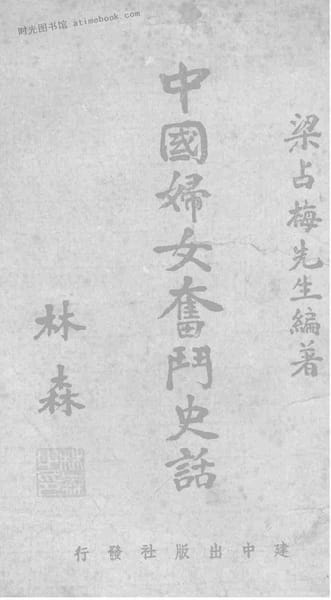 时光图书馆 atimebook.com
梁占梅先生編著
中國婦女奮鬥史話
林森
建中出版社發行